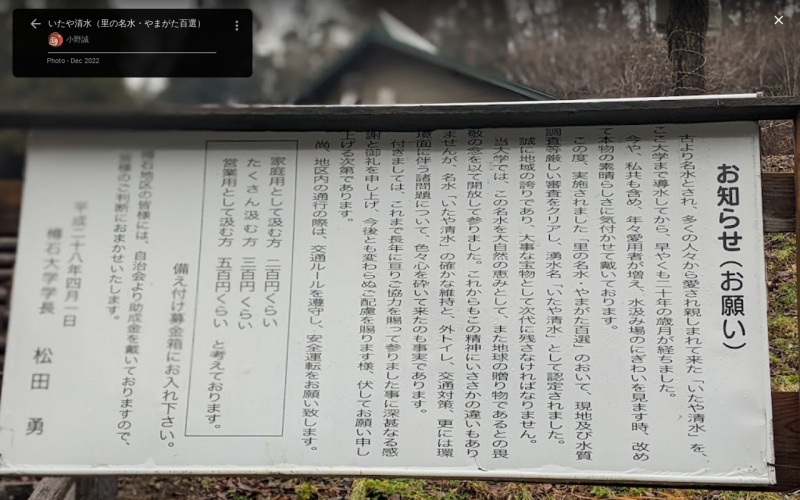 いたや清水（里の名水・やまがた百選）
小野誠
Photo - Dec 2022
お知らせ（お願い）
古より名水とされ、多くの人々から愛され親しまれて来た「いたや清水」を、
ここ大学まで導水してから、早やくも二十年の歳月が経ちました。
今や、私共も含め、年々愛用者が増え、水汲み場のにぎわいを見ます時、改め
て本物の素晴らしさに気付かせて戴いております。
この度、実施されました「里の名水・やまがた百選」のおいて、現地及び水質
調査等厳しい審査をクリアし、湧水名「いたや清水」として認定されました。
誠に地域の誇りであり、大事な宝物として次代に残さなければなりません。
当大学では、この名水を大自然の恵みとして、また地球の贈り物であるとの畏
敬の念を以て開放して参りました。これからもこの精神にいささかの違いもあり
ませんが、名水「いたや清水」の確かな維持と、外トイレ、交通対策、更には環
境面に伴う諸問題について、色々心を砕いて来たのも事実であります。
付きましては、これまで長年に亘りご協力を賜って参りました事に深甚なる感
謝と御礼を申し上げ、今後とも変わらぬご配慮を賜ります様、伏してお願い申し
上げる次第であります。
尚、地区内の通行の際は、交通ルールを遵守し、安全運転をお願い致します。
家庭用として汲む方 二百円くらい
たくさん汲む方 三百円くらい
営業用として汲む方 五百円くらい と考えております。
備え付け募金箱にお入れ下さい。
樽石地区の皆様には、自治会より助成金を戴いておりますので、
皆様のご判断におまかせいたします。
平成二十八年四月一日
樽石大学学長 松田 勇